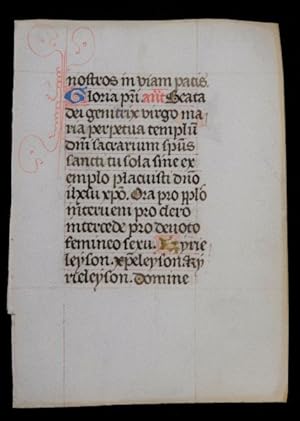 nostros in viam pacis.
Gloria pri. añt Beata
dei genitrix virgo ma
ria perpetua templū
dnī sacrarium spūs
sancti tu sola sine ex
emplo placuisti dn̄o
ihesu xp̄o. Ora pro pplo
interveni pro clero
intercede pro devoto
femineo sexu. Kyrie
leyson. xpeleyson. Ky
rieleyson. Domine